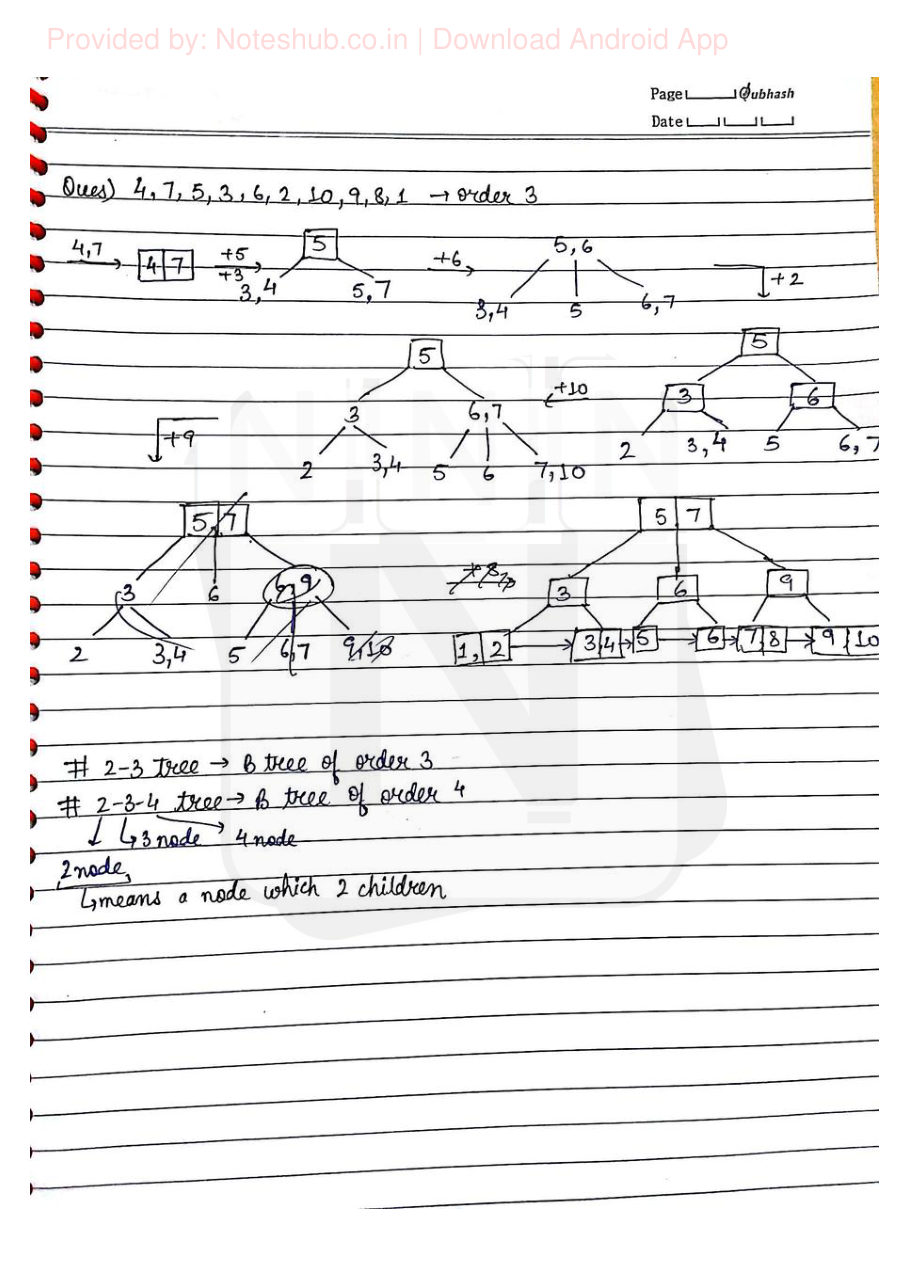 Provided by: Noteshub.co.in | Download Android App
Page Subhash
Date
Ques) 4, 7, 5, 3, 6, 2, 10, 9, 8, 1 → order 3
4,7 → 4 7 +5 +3 → 5 +6 → 5,6 +2
3,4 5,7 3,4 5 6,7
5 5
+9 3 6,7 +10 3 6
2 3,4 5 6 7,10 2 3,4 5 6,7
5,7 5 7
3 6 6,9 3 6 9
2 3,4 5 6,7 9,10 1,2 → 3 4 → 5 → 6 → 7 8 → 9 10
# 2-3 tree → B tree of order 3
# 2-3-4 tree → B tree of order 4
↓ ↳ 3 node → 4 node
2 node
↳ means a node which 2 children